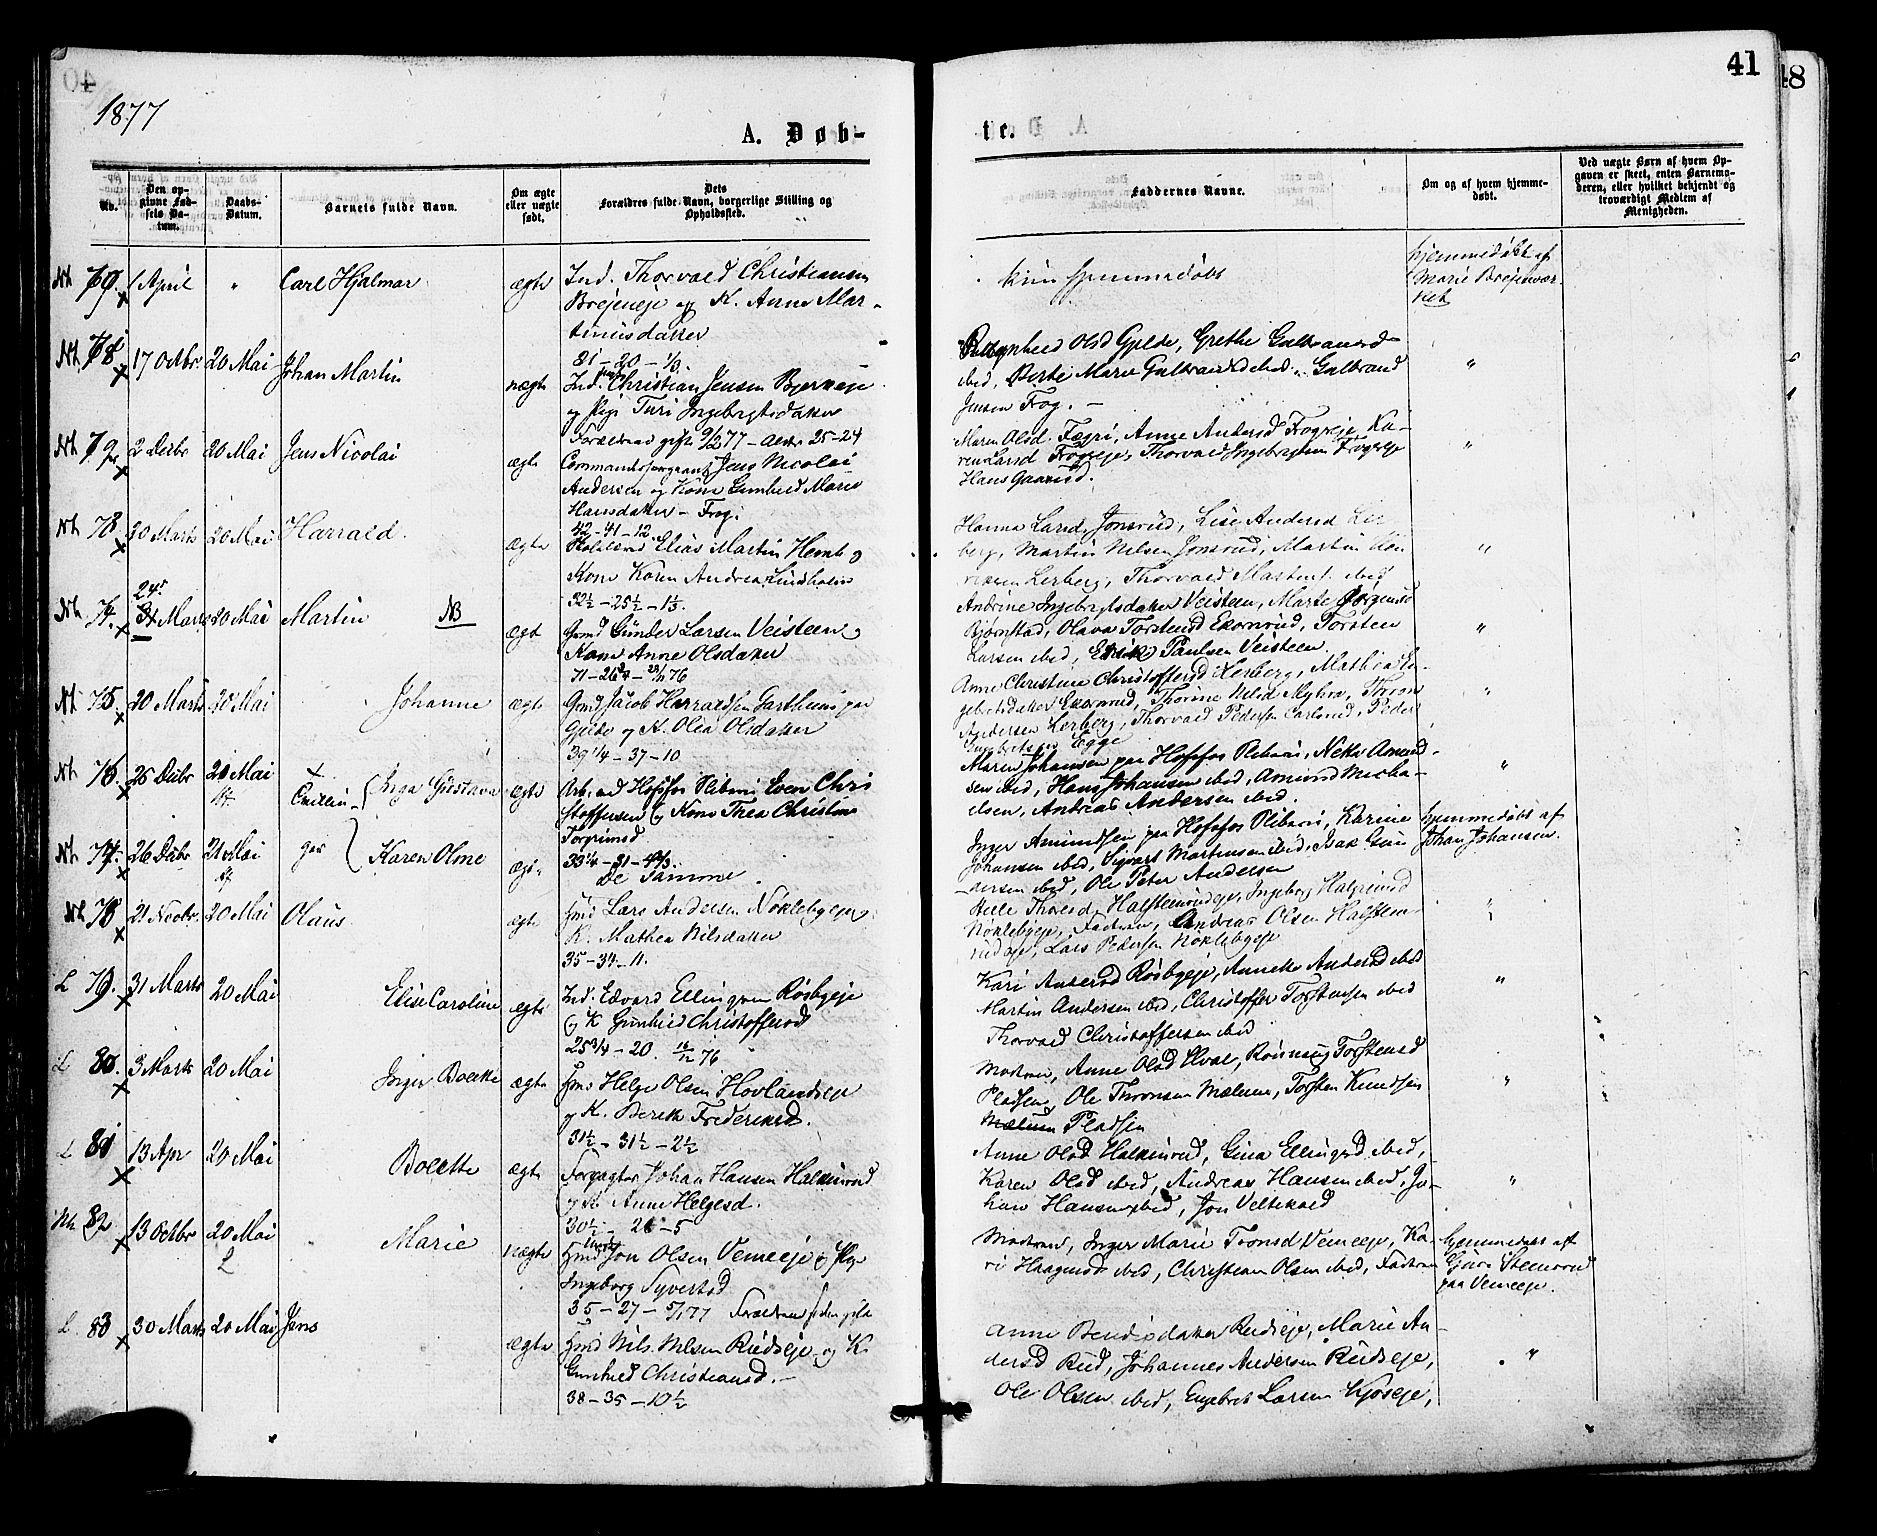 1877
41
48
A. Døb-
te.
No.
Den op-
givne Fød-
sels Da-
tum.
Daabs-
Datum.
Barnets fulde Navn.
Om ægte
eller uægte
født.
Dets
Forældres fulde Navn, borgerlige Stilling og
Opholdssted.
Faddernes Navne.
Om og af hvem hjemme-
døbt.
Ved uægte Børn af hvem Op-
gaven er skeet, enten Barnemo-
deren, eller hvilket bekjendt og
troværdigt Medlem af
Menigheden.
1 April " Carl Hjalmar ægte Ind. Thorvald Christiansen
og K. Anne Mar-
tinusdatter
21-20-1/3
kun hjemmedøbt
hjemmedøbt af
Marie
17 Octbr. 20 Mai Johan Martin uægte Ind. Christian Jensen
og Pige Turi Ingebrigtsdatter
Forældrene gift 9/2 77 - 25-24
Olsd Gjelde, Grethe
ibid, Berte Marie ibid, Gulbrand
Jensen Frog. - "
2 Decbr 20 Mai Jens Nicolai ægte Jens Nicolai
Andersen og Kone Gunhild Marie
Hansdatter - Frog
42-41-12
Maren Olsd. Anne Andersd Frogeje, Ka-
ren Larsd Frogeje, Thorvald Ingebrigtsen Frogeje
Hans "
Nh 73 20 Marts 20 Mai Harrald. ægte Elias Martin
Kone Karen Andrea Lindholm
32½-25½-1½.
Hanna Larsd. Jonsrud, Lise Andersd Ler-
berg, Martin Nilsen Jonsrud, Martin
Lerberg, Thorvald ibid "
Nh 74. 24 Marts 20 Mai Martin NB ægte Gmd Gunder Larsen Veisteen og
Kone Anne Olsdatter
71-26
Andrine Ingebrigtsdatter Veisteen, Marte
Bjørnstad, Olava Torstensd Ekornrud, Torsten
Larsen ibid, Paulsen Veisteen. "
Nh 75 20 Marts 20 Mai Johanne ægte Gmd Jacob Harraldsen Garthuus paa
Gjelde og K. Olea Olsdatter
39¼-37-10
Anne Christine Christoffersd Lerberg, Mathea In-
gebretsdatter Ekornrud, Thorine Nilsd Myhra, Thron
Andersen Lerberg, Thorvald Pedersen Carlsrud, Peder
Egge "
Nh 76 26 Decbr 20 Mai Tvillin- Inga Gustava ægte Arb. ved Hofsfos Sliberi Even Chri
stoffersen og Kone Thea Christine
Torgrimsd
33¼-31-
Maren Johansen paa Hofsfos Sliberi,
ibid, Hans Johansen ibid, Amund Micha-
elsen, Andreas Andersen ibid. "
Nh 77. 26 Decbr 20 Mai ger Karen Olme ægte De Samme
Inger Amundsen paa Hofsfos Sliberi, Karine
Johansen ibid, Sigvart Mortensen ibid, Isak Gun-
dersen ibid, Ole Peter Andersen
hjemmedøbt af
Johan Johansen.
Nh 78 21 Novbr. 20 Mai Olaus ægte Hmd Lars Andersen Nøklebyeje
K. Mathea Nilsdatter
35-34-11.
Helle Thoresd. Halsteinrudeje, Ingeborg
Nøklebyeje, Faderen, Andreas Olsen Halstein-
rudeje, Lars Pedersen Nøklebyeje "
L 79. 31 Marts 20 Mai Elise Caroline ægte Ind. Edvard Ellingsen Røsbyeje
og K Gunhild Christoffersd
25¾-20. 76
Kari Andersd Røsbyeje, Anneke Andersd ibid
Martin Andersen ibid, Christoffer Torstensen ibid
Thorvald Christoffersen ibid "
L 80. 3 Marts 20 Mai Inger Bolette ægte Hmd Helge Olsen Hovlandseje
og K. Berthe Frederiksd.
31½-31½-2½
Moderen, Anne Olsd Hval, Rønnaug Torstensd
Pladsen, Ole Thronsen Mælum, Torsten Knudsen
Mælum Pladsen "
L 81 13 Apr 20 Mai Bolette ægte Forpagter Johan Hansen Halkinrud
og K. Anne Helgesd.
30½-26-5
Anne Olsd Halkinrud, Gina Ellingsd ibid,
Karen Olsd ibid, Andreas Hansen ibid, Jo-
han Hansen ibid, Jon Veltekaed "
Nh 82 13 Octbr 20 Mai
2
Marie uægte Hmd Jon Olsen Vemeeje og Pige
Ingeborg Syverstad
35-27-
Moderen, Inger Marie Tronsd Vemeeje, Ka-
ri Haagensd ibid, Christian Olsen ibid, Faderen
hjemmedøbt af
Steenrud
paa Vemeeje.
L. 83 30 Marts 20 Mai Jens ægte Hmd Nils Nilsen Rudseje og K.
Gunhild Christiansd.
38-35-10½
Anne Bendixdatter Rudseje, Marie An-
dersd Rud, Johannes Andersen Rudseje,
Ole Olsen ibid, Engebret Larsen "